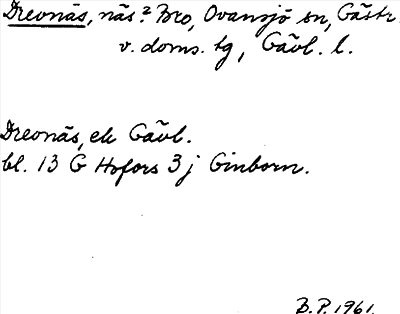 Dreonäs, näs? Bro, Ovansjö sn, Gästr.
v. doms. tg, Gävl. l.
Dreonäs, ek Gävl.
bl. 13 G Hofors 3 j Ginborn.
B.P. 1961.